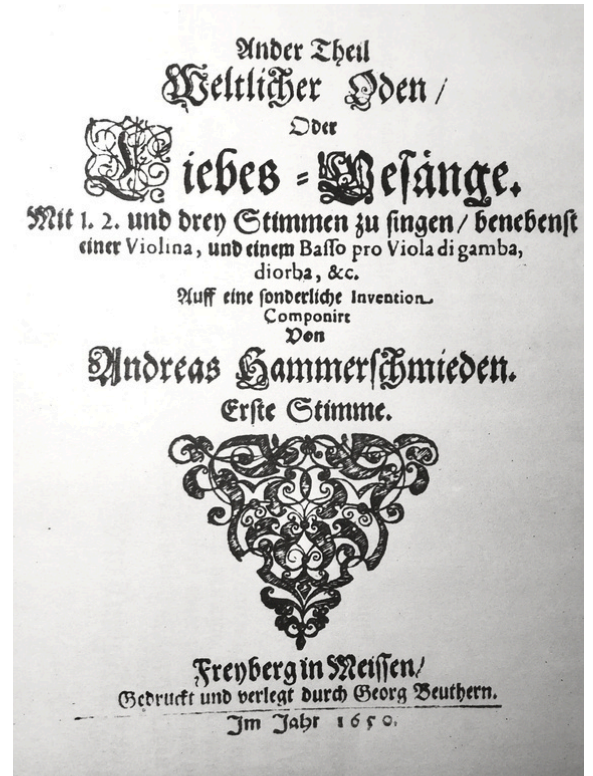 Ander Theil
Weltlicher Oden /
Oder
Liebes = Gesänge.
Mit 1. 2. und drey Stimmen zu singen / benebenst
einer Violina, und einem Basso pro Viola di gamba,
diorba, &c.
Auff eine sonderliche Invention
Componirt
Von
Andreas Hammerschmieden.
Erste Stimme.
Freyberg in Meissen /
Gedruckt und verlegt durch Georg Beuthern.
Im Jahr 1650.